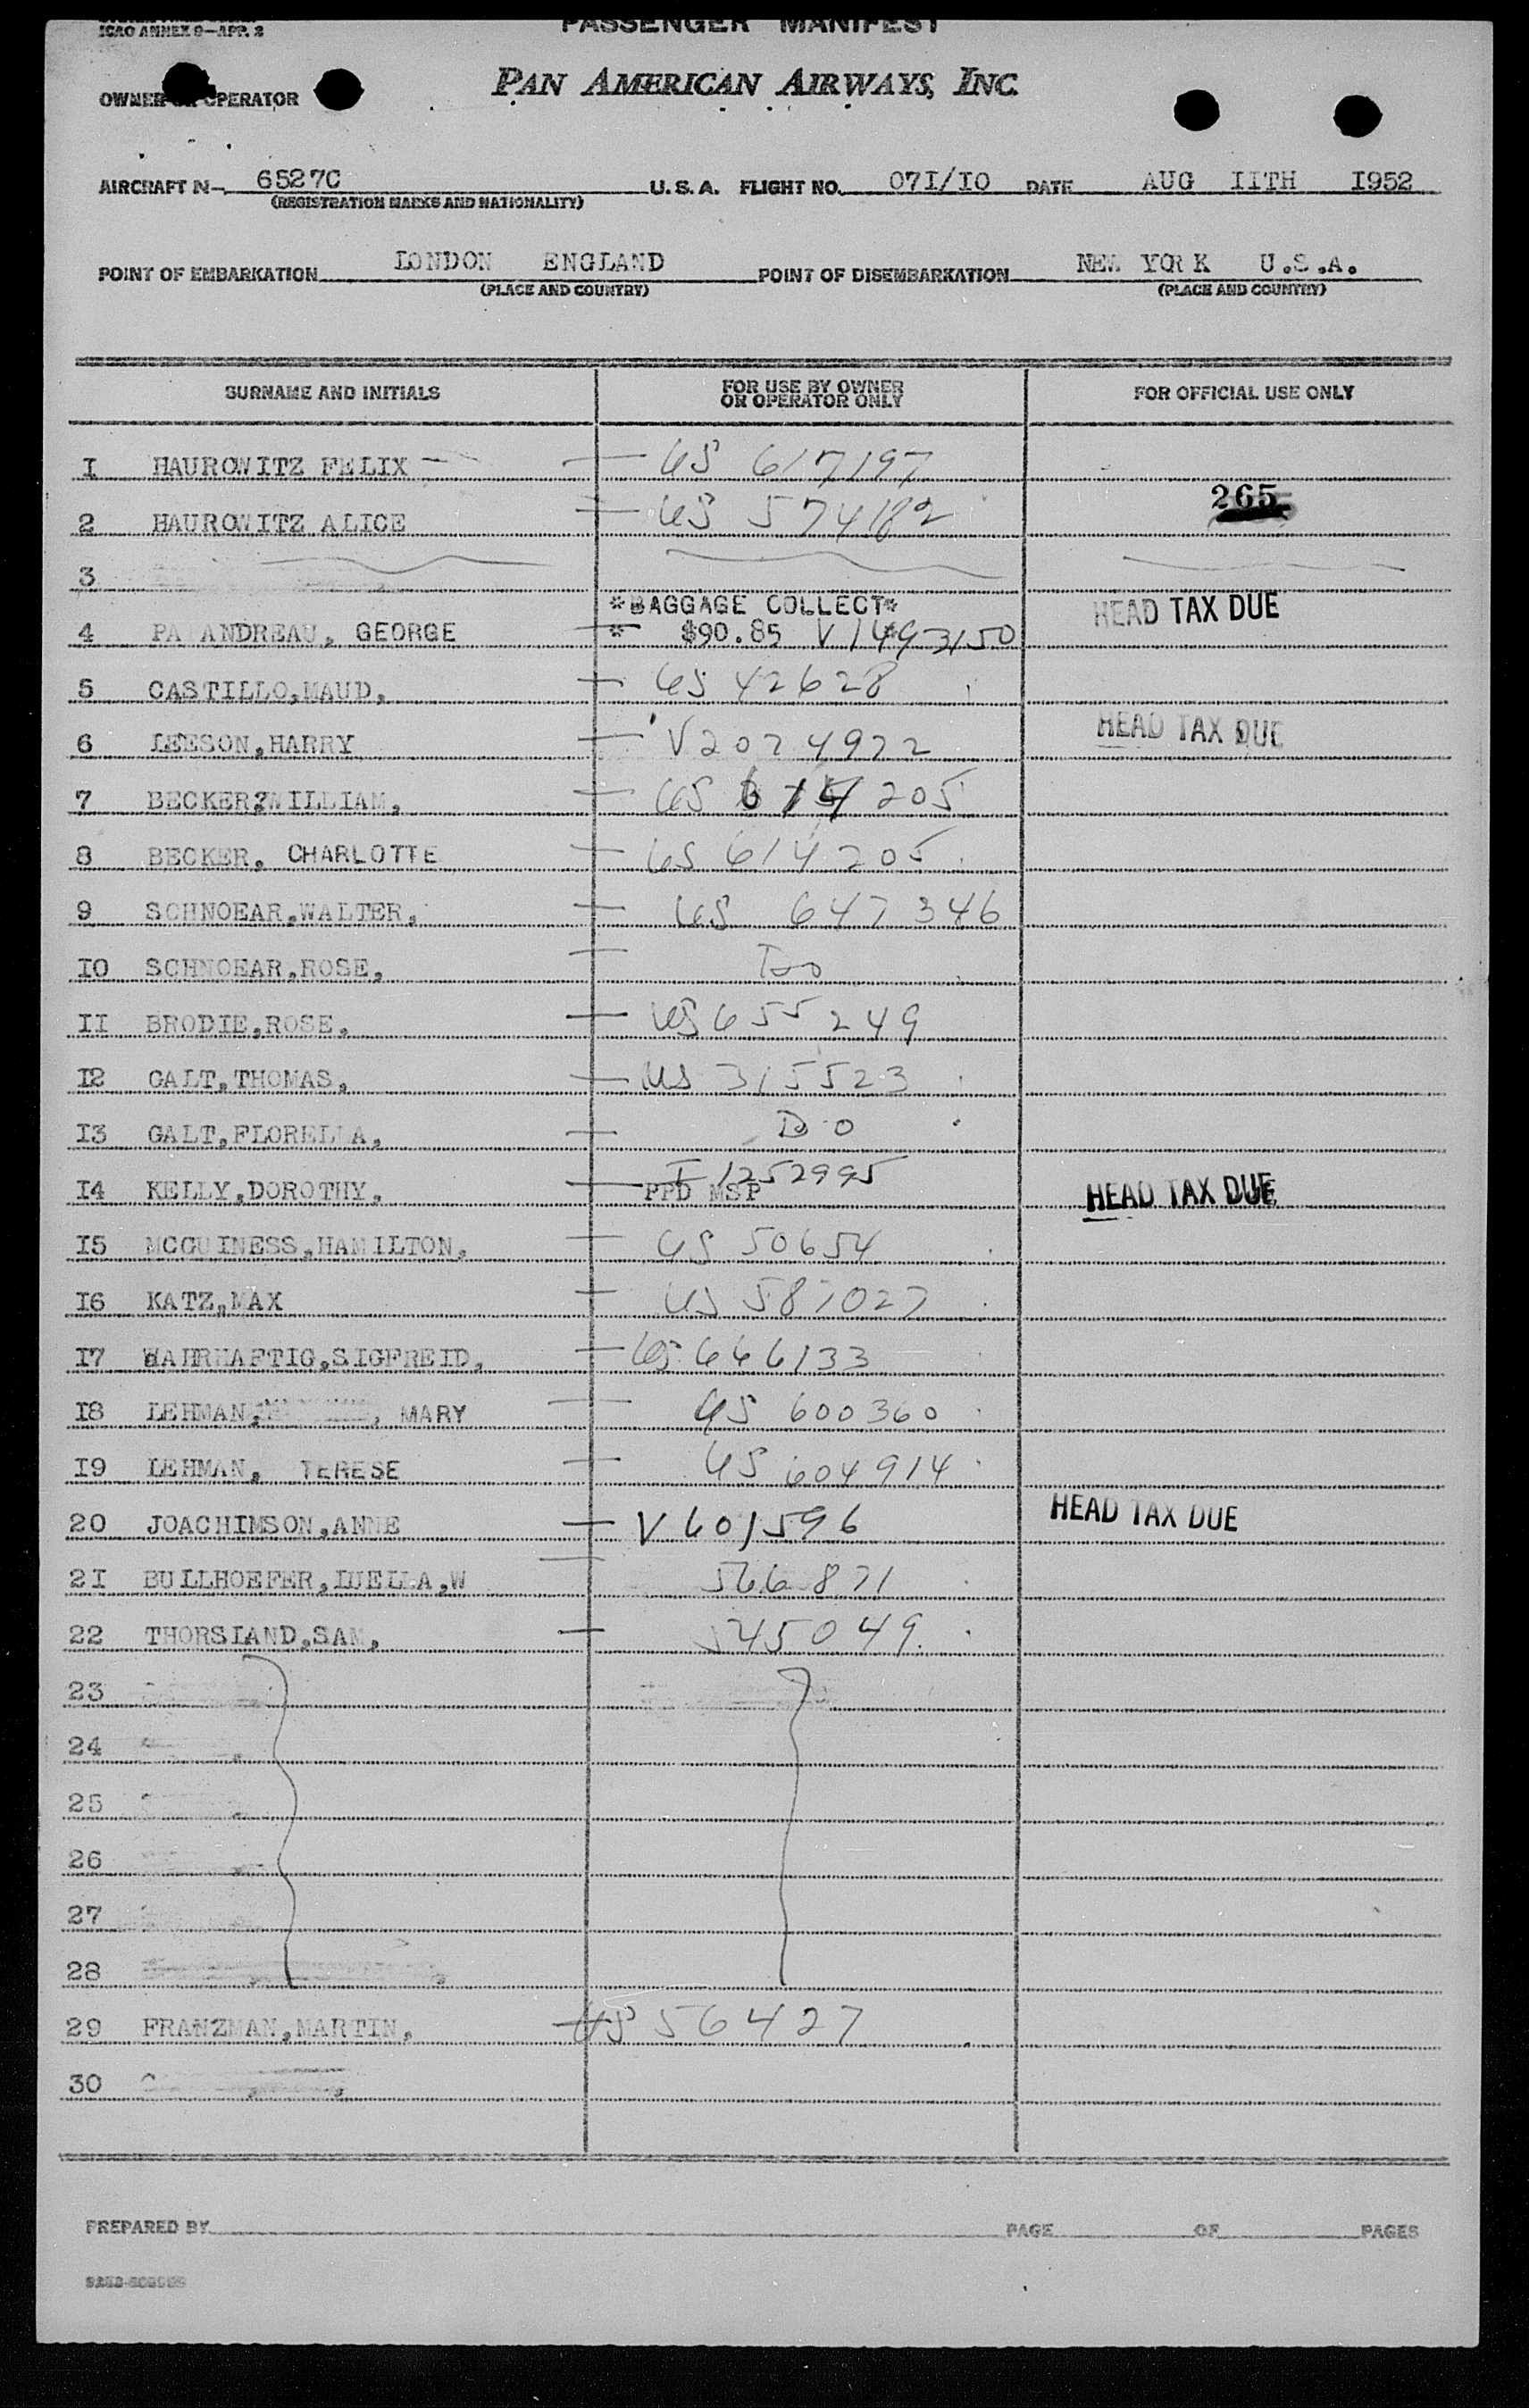 ICAO ANNEX 9—APP. 2
PASSENGER MANIFEST
OWNER OR OPERATOR PAN AMERICAN AIRWAYS, INC.
AIRCRAFT N- 6527C U.S.A. FLIGHT NO. 07I/I0 DATE AUG IITH I952
(REGISTRATION MARKS AND NATIONALITY)
POINT OF EMBARKATION LONDON ENGLAND POINT OF DISEMBARKATION NEW YORK U.S.A.
(PLACE AND COUNTRY) (PLACE AND COUNTRY)
SURNAME AND INITIALS FOR USE BY OWNER OR OPERATOR ONLY FOR OFFICIAL USE ONLY
I HAUROWITZ FELIX — US 617197
265
2 HAUROWITZ ALICE US 574182
3
*BAGGAGE COLLECT* HEAD TAX DUE
4 PA ANDREAU, GEORGE * $90.85 V 1493150
5 CASTILLO,MAUD, US 42628
6 LEESON,HARRY V2024922 HEAD TAX DUE
7 BECKER,WILLIAM, US 614205
8 BECKER, CHARLOTTE US 614205
9 SCHNOEAR,WALTER, US 647346
I0 SCHNOEAR,ROSE, Do
II BRODIE,ROSE, US 655249
I2 GALT,THOMAS, US 315523
I3 GALT,FLORELLA, Do
I4 KELLY,DOROTHY, I 1252995 HEAD TAX DUE
PPD MSP
I5 MCGUINESS,HAMILTON, US 50654
I6 KATZ,MAX US 587027
I7 WAHRHAFTIG,SIGFREID, US 666133
I8 LEHMAN, , MARY US 600360
I9 LEHMAN, TERESE US 604914
20 JOACHIMSON,ANNE V 601596 HEAD TAX DUE
2I BULLHOEFER,LUELLA,W 566871
22 THORSLAND,SAM, 545049
23
24
25
26
27
28
29 FRANZMAN,MARTIN, US 56427
30
PREPARED BY PAGE OF PAGES